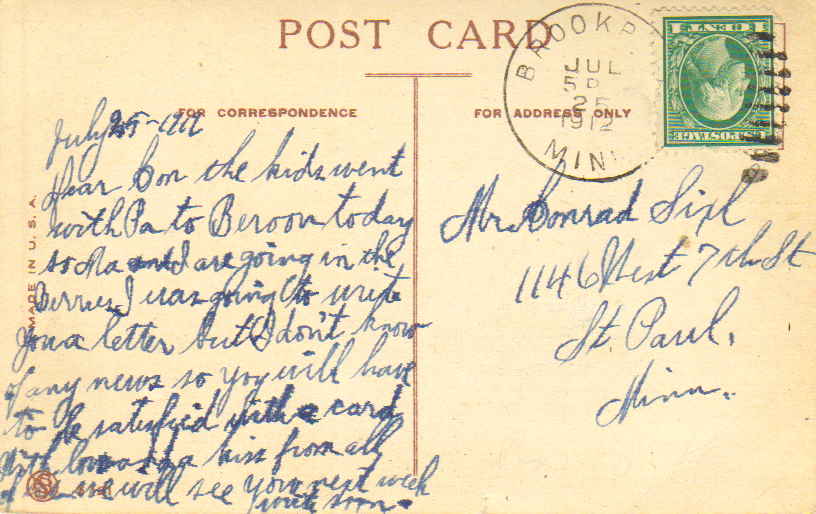 POST CARD
FOR CORRESPONDENCE
FOR ADDRESS ONLY
MADE IN U. S. A.
BROOKP
JUL
5 P
25
1912
MINN
U.S. POSTAGE
1 CENT 1
July 25 - 1912
Dear Con the kids went
with Pa to Beroon today
so Ma and I are going in the
berries I was going to write
you a letter but I don't know
of any news so you will have
to be satisfied with a card
With love and a kiss from all
of us we will see you next week
write soon.
Mr. Conrad Sixl
1146 West 7th St
St. Paul,
Minn.